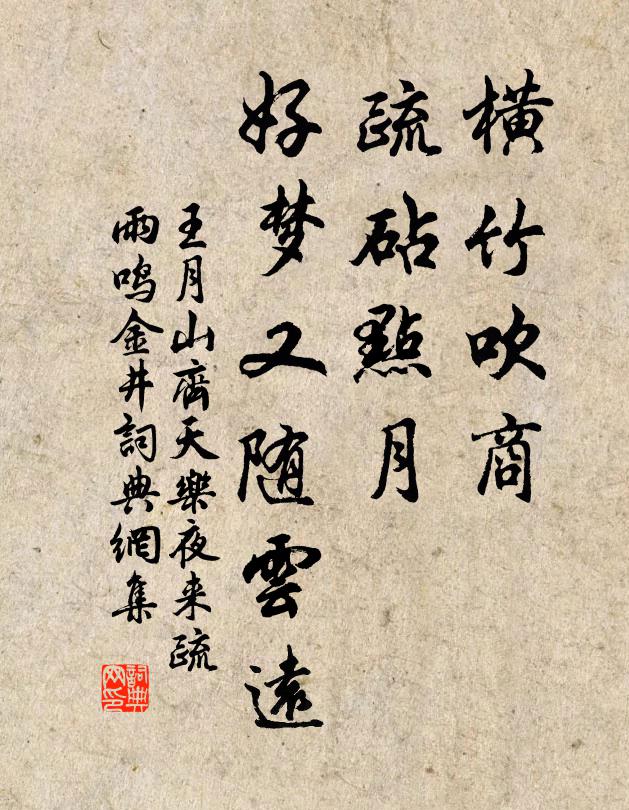 橫竹吹商
疏砧點月
好梦又随雲遠
王月山齊天樂夜来疏
雨鸣金井詞典網集
詞典
网印